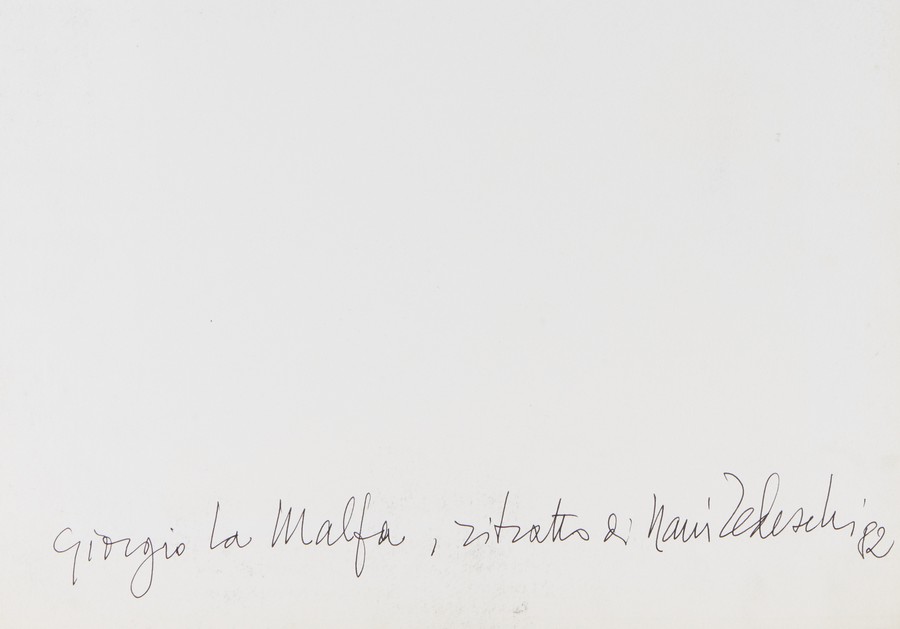 Giorgio La Malfa, ritratto di Nani Tedeschi 82